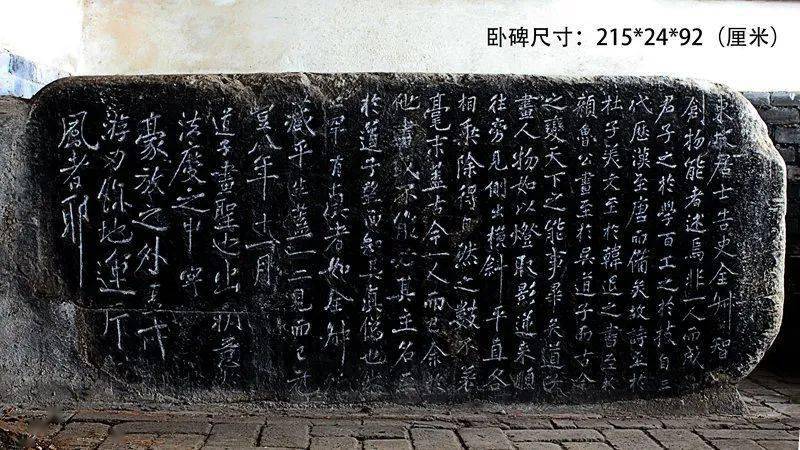 卧碑尺寸：215*24*92（厘米）
東坡居士告史全叔 智
創物能者述焉非一人而成
君子之於學百工之於技自三
代歷漢至唐而備矣故詩至於
杜子美文至於韓退之書至於
顏魯公畫至於吳道子而古今
之變天下之能事畢矣道子
畫人物如以燈取影逆來順
往旁見側出橫斜平直各
相乘除得自然之數不差
毫末蓋古今一人而已余於
他畫或不能必其主名至
於道子望而知其真偽也
罕有真者如全叔
藏平生蓋一二見而已元
豐八年十一月
道子畫聖也出新意
法度之中寄
豪放之外
游刃餘地運斤
風者耶